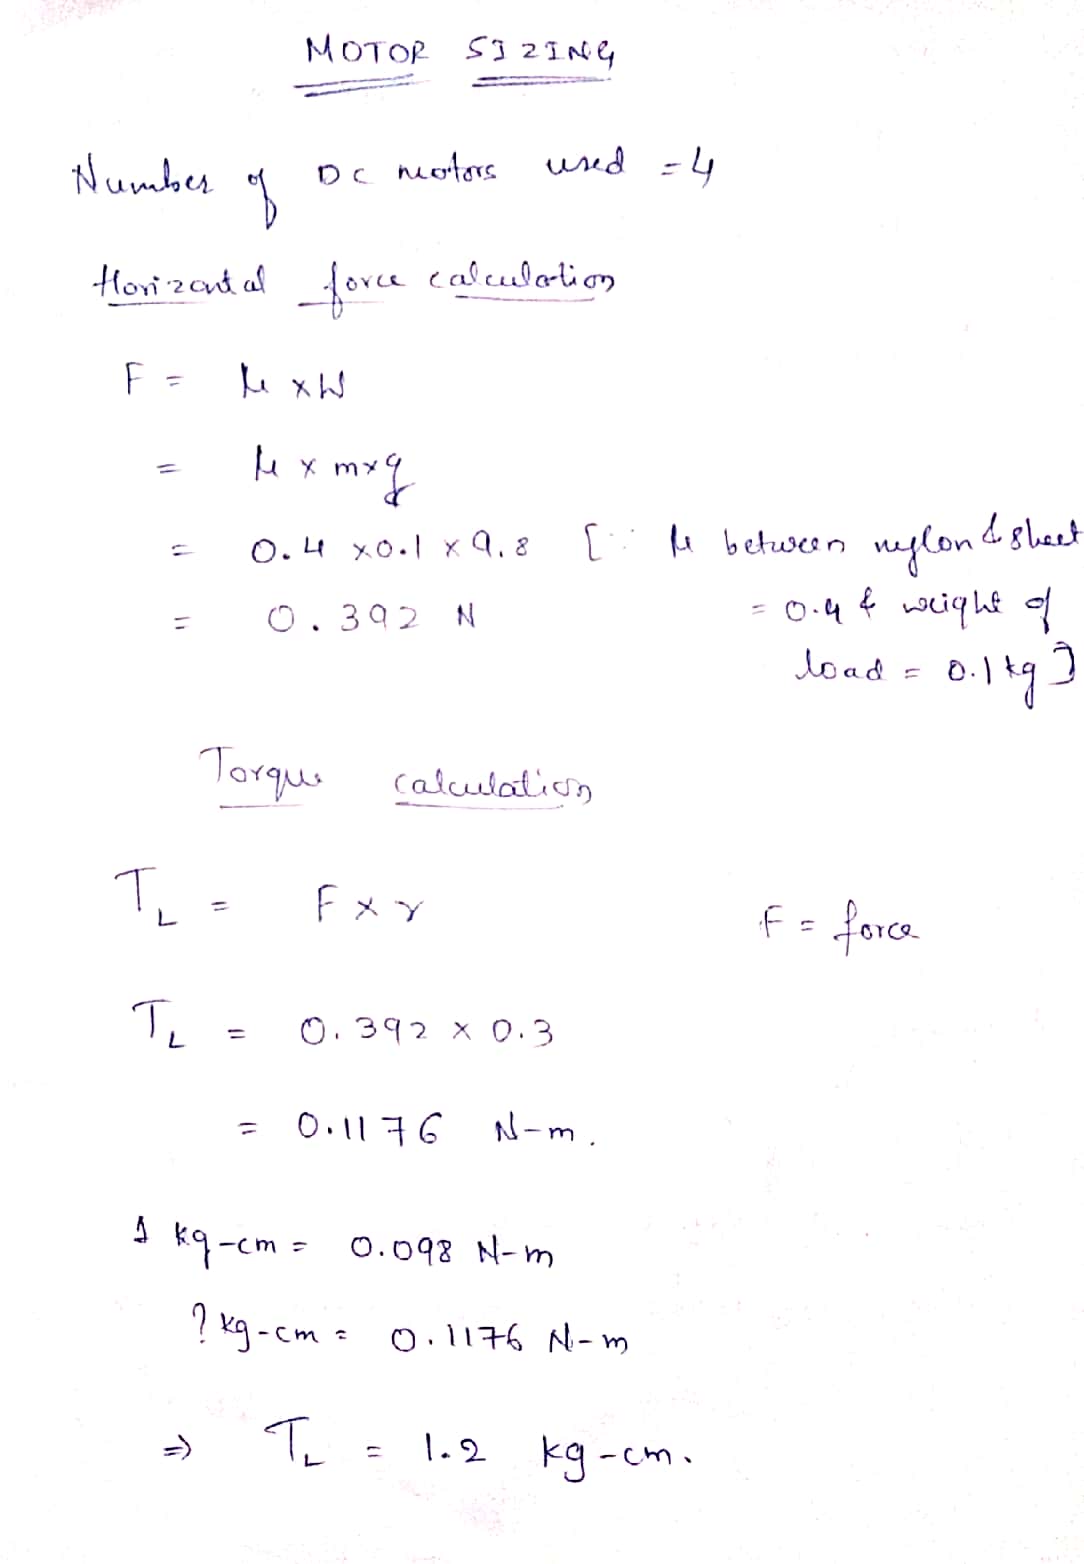 MOTOR SIZING
Number of DC motors used = 4
Horizontal force calculation
F = μ x W
= μ x m x g
= 0.4 x 0.1 x 9.8 [∵ μ between nylon & sheet
= 0.392 N = 0.4 & weight of
load = 0.1 kg]
Torque calculation
T_L = F x r F = force
T_L = 0.392 x 0.3
= 0.1176 N-m.
1 kg-cm = 0.098 N-m
? kg-cm = 0.1176 N-m
⇒ T_L = 1.2 kg-cm.